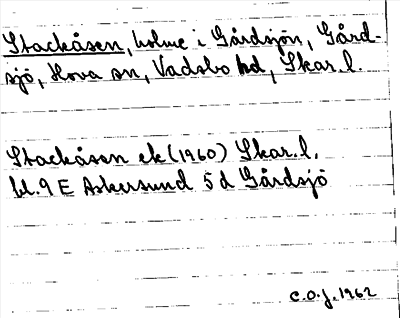 Stackåsen, holme i Gårdsjön, Gård-
sjö, Hova sn, Vadsbo hd, Skar. l.
Stackåsen ek (1960) Skar. l.
bl. 9 E Askersund 5 d Gårdsjö
C.O.J. 1962